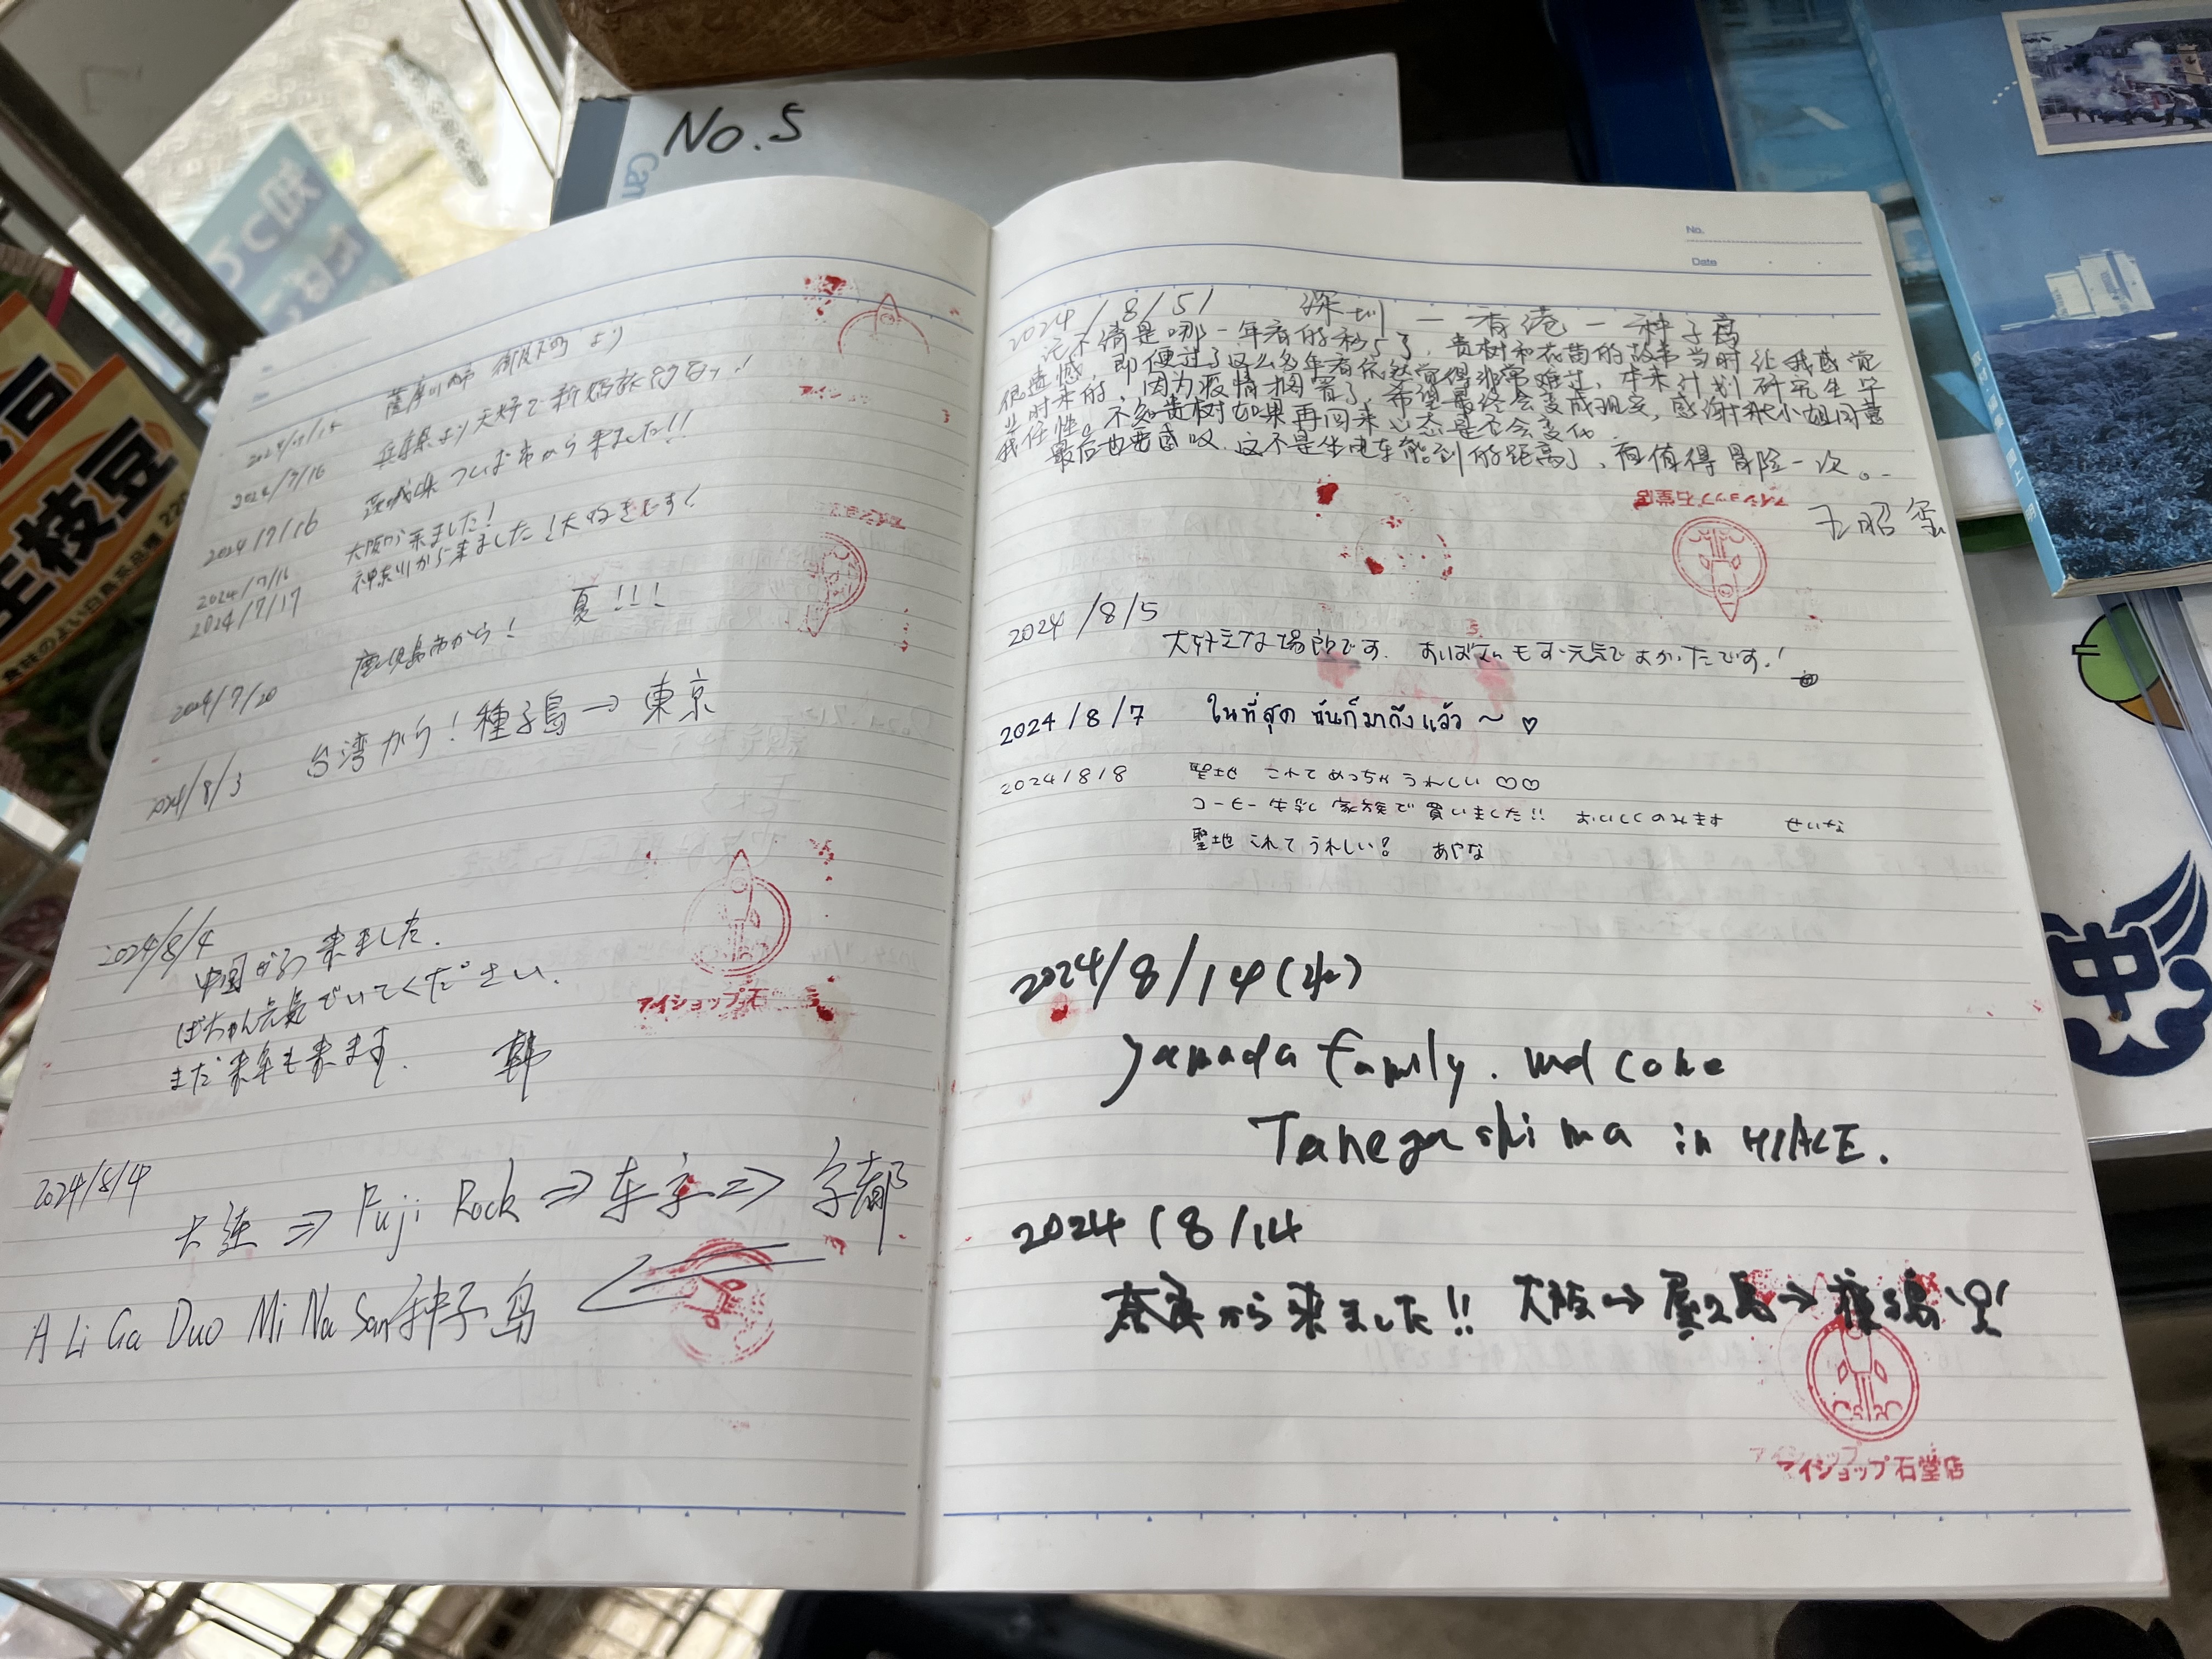 No.5
Can
枝豆
2024/7/16
兵庫県より夫婦で新婚旅行
2024/7/16
茨城県つくば市から来ました!!
2024/7/16
大阪から来ました!
2024/7/17
神奈川から来ました!大好きです!
夏!!!
2024/7/20
鹿児島市から!
2024/8/3
台湾から!種子島→東京
2024/8/4
中国から来ました.
ばちゃん元気でいてください.
まだ来年も来ます. 韩
アイショップ石
2024/8/4
大连⇒Fuji Rock⇒东京⇒京都
A Li Ga Duo Mi Na San 种子岛
No.
Date
2024/8/5/ 深圳-香港-种子岛
记不清是哪一年看的秒5了,贵树和花苗的故事当时让我感觉
很遗憾,即便过了这么多年看依然觉得非常难过,本来计划研究生毕
时来的,因为疫情搁置了,希望最终会变成现实,感谢
我任性。不知贵树如果再回来心态是否会变化
这不是坐电车能到的距离了,有值得冒险一次。
アイショップ石堂店
2024/8/5
大好きな場所です. おばさんも元気でよかったです!
2024/8/7 ในที่สุด ฉันก็มาถึงแล้ว ~ ♡
2024/8/8 聖地 これてめっちゃうれしい ♡♡
コーヒー牛乳 家族で買いました!! おいしくのみます せいな
聖地 これてうれしい? あやな
2024/8/14(水)
yamada family. welcome
Tanegashima in HIACE.
2024/8/14
奈良から来ました!! 大阪→屋久島→種子島
アイショップ石堂店
中